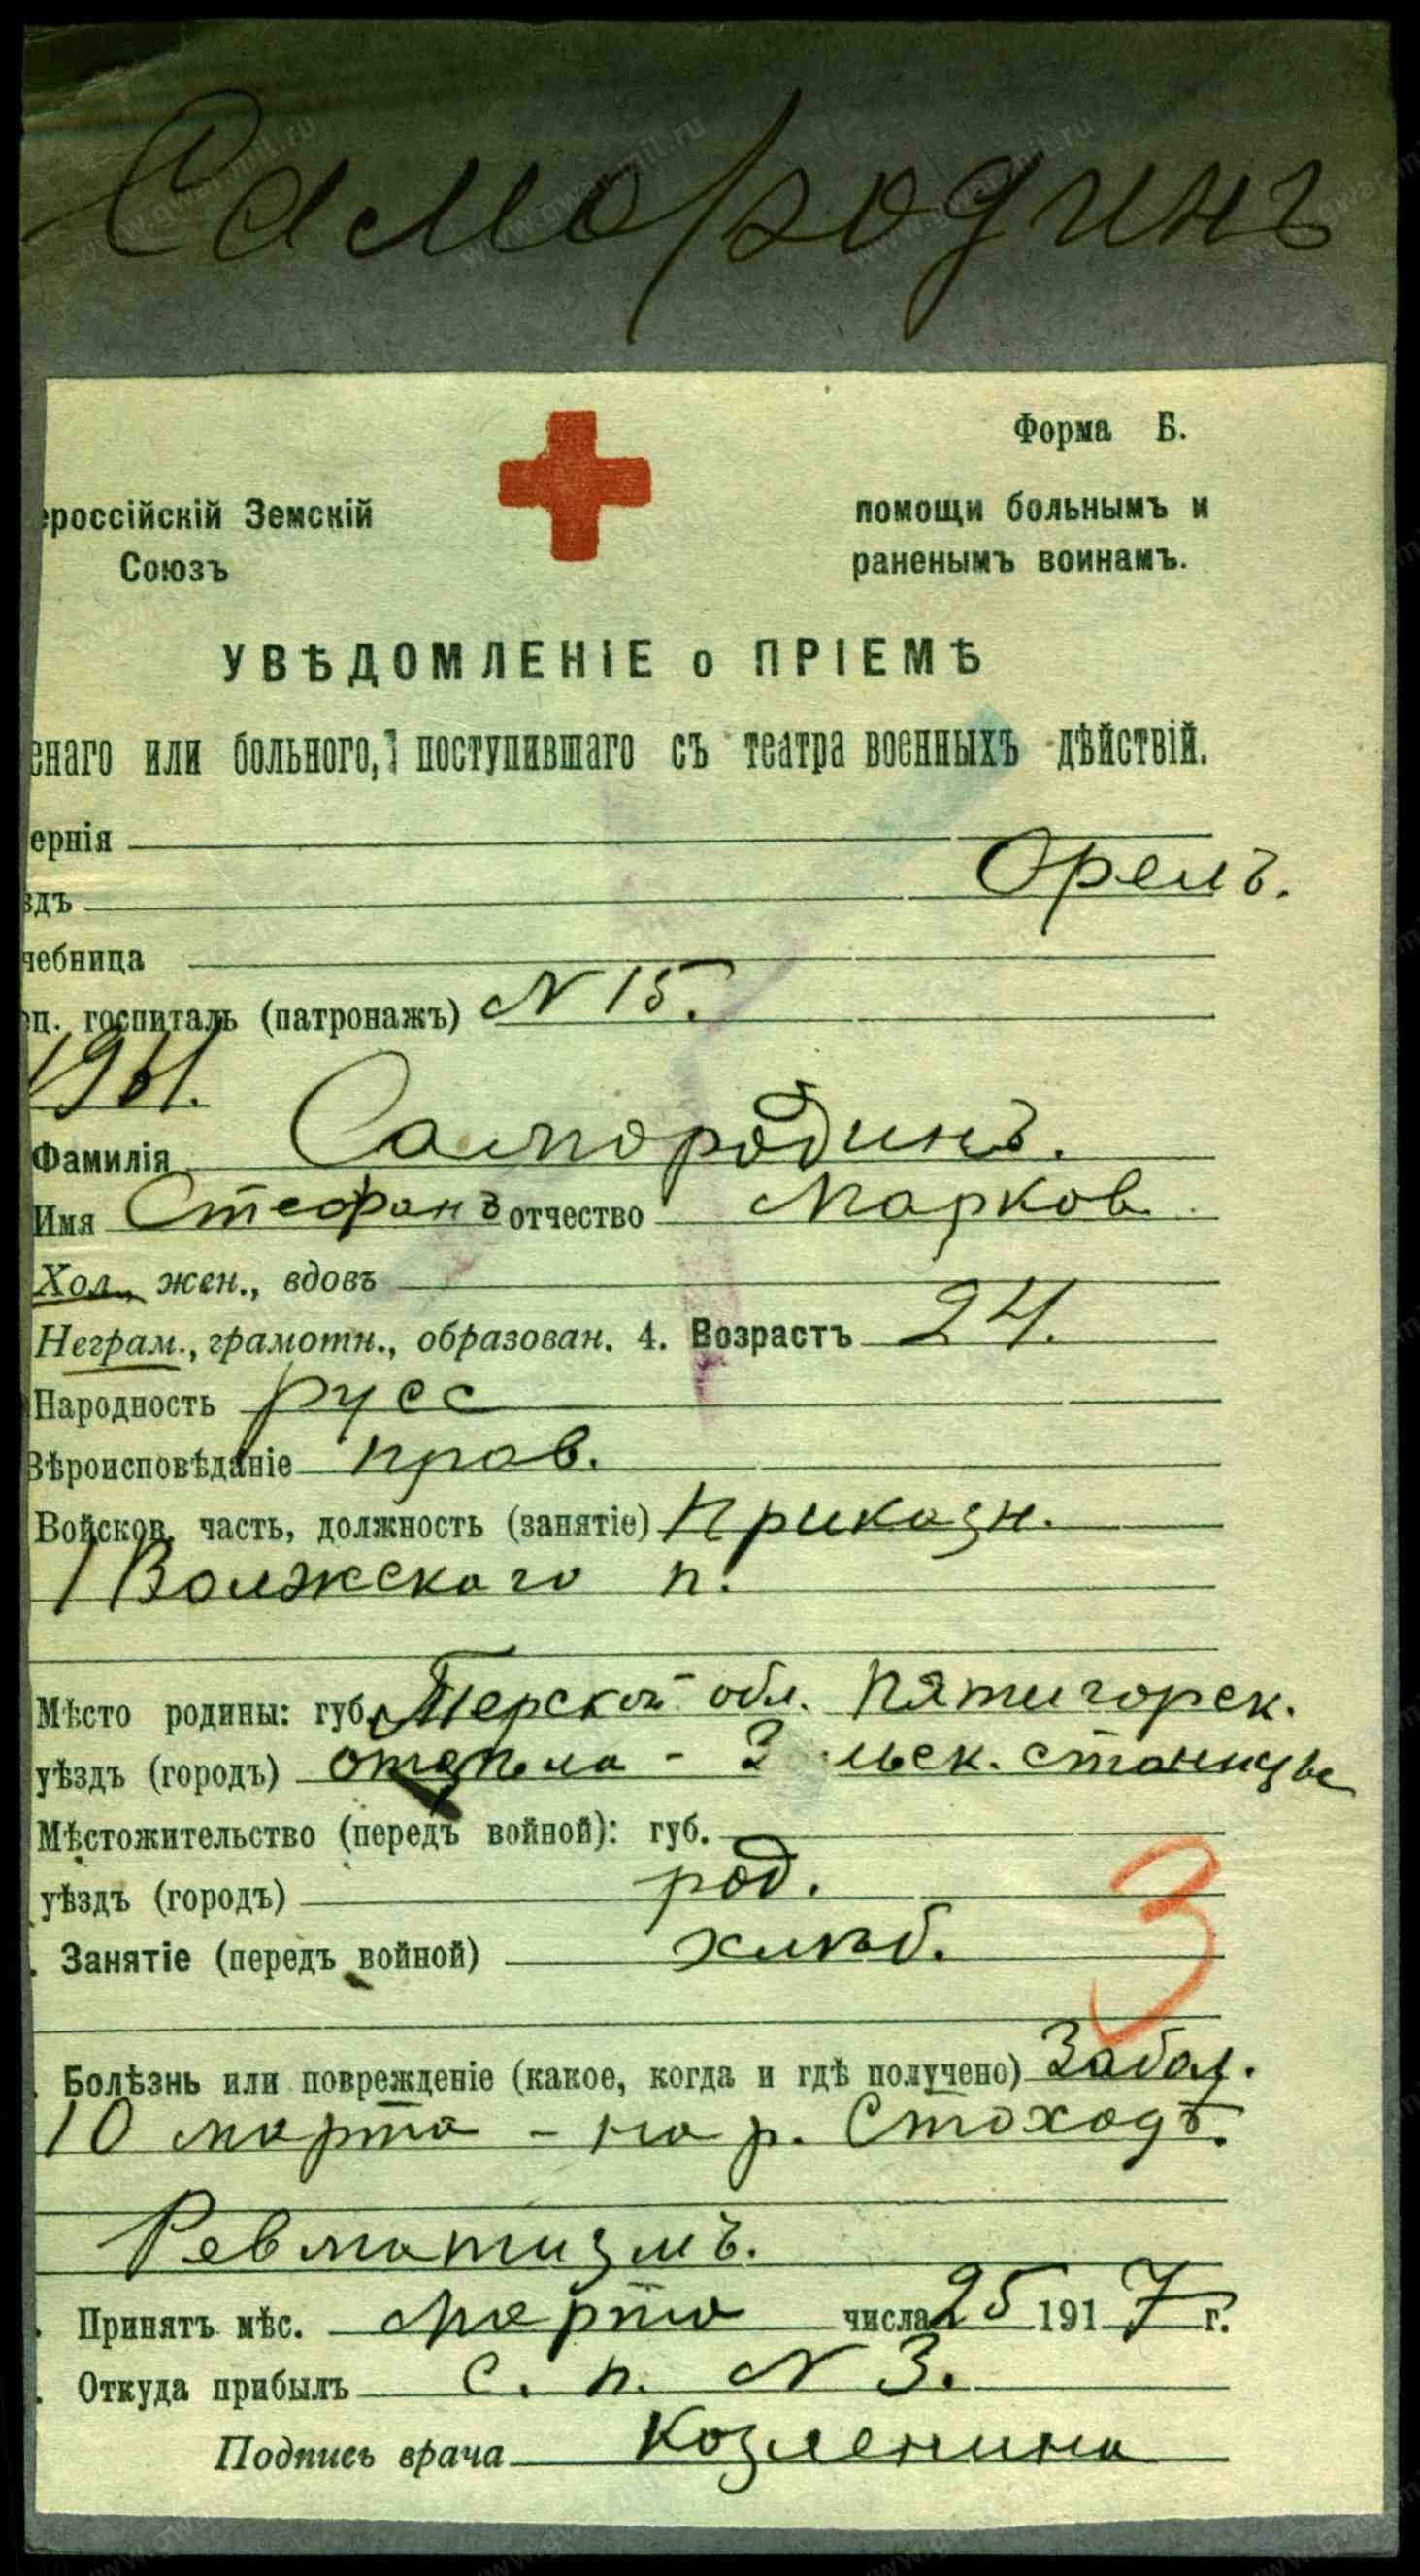 Самородинъ
Форма Б.
ероссійскій Земскій
Союзъ
помощи больнымъ и
раненымъ воинамъ.
УВѢДОМЛЕНІЕ о ПРІЕМѢ
енаго или больного, поступившаго съ театра военныхъ дѣйствій.
ернія
Орелъ.
здъ
чебница
п. госпиталь (патронажъ) N 15.
1961.
Фамилія Самородинъ.
Имя Стефанъ отчество Марков
Хол., жен., вдовъ
Неграм., грамотн., образован. 4. Возрастъ 24.
Народность русс
Вѣроисповѣданіе прав.
Войсков. часть, должность (занятіе) Приказн.
1 Волжскаго п.
Мѣсто родины: губ. Терской обл. Пятигорск.
уѣздъ (городъ) отдѣла - льск. станицы
Мѣстожительство (передъ войной): губ.
уѣздъ (городъ) род.
3
Занятіе (передъ войной) хлѣб.
Болѣзнь или поврежденіе (какое, когда и гдѣ получено) Забол.
10 марта - на р. Стоходѣ.
Ревматизмъ.
Принятъ мѣс. марта числа 25 1917 г.
Откуда прибылъ с. п. N 3.
Подпись врача Козленина